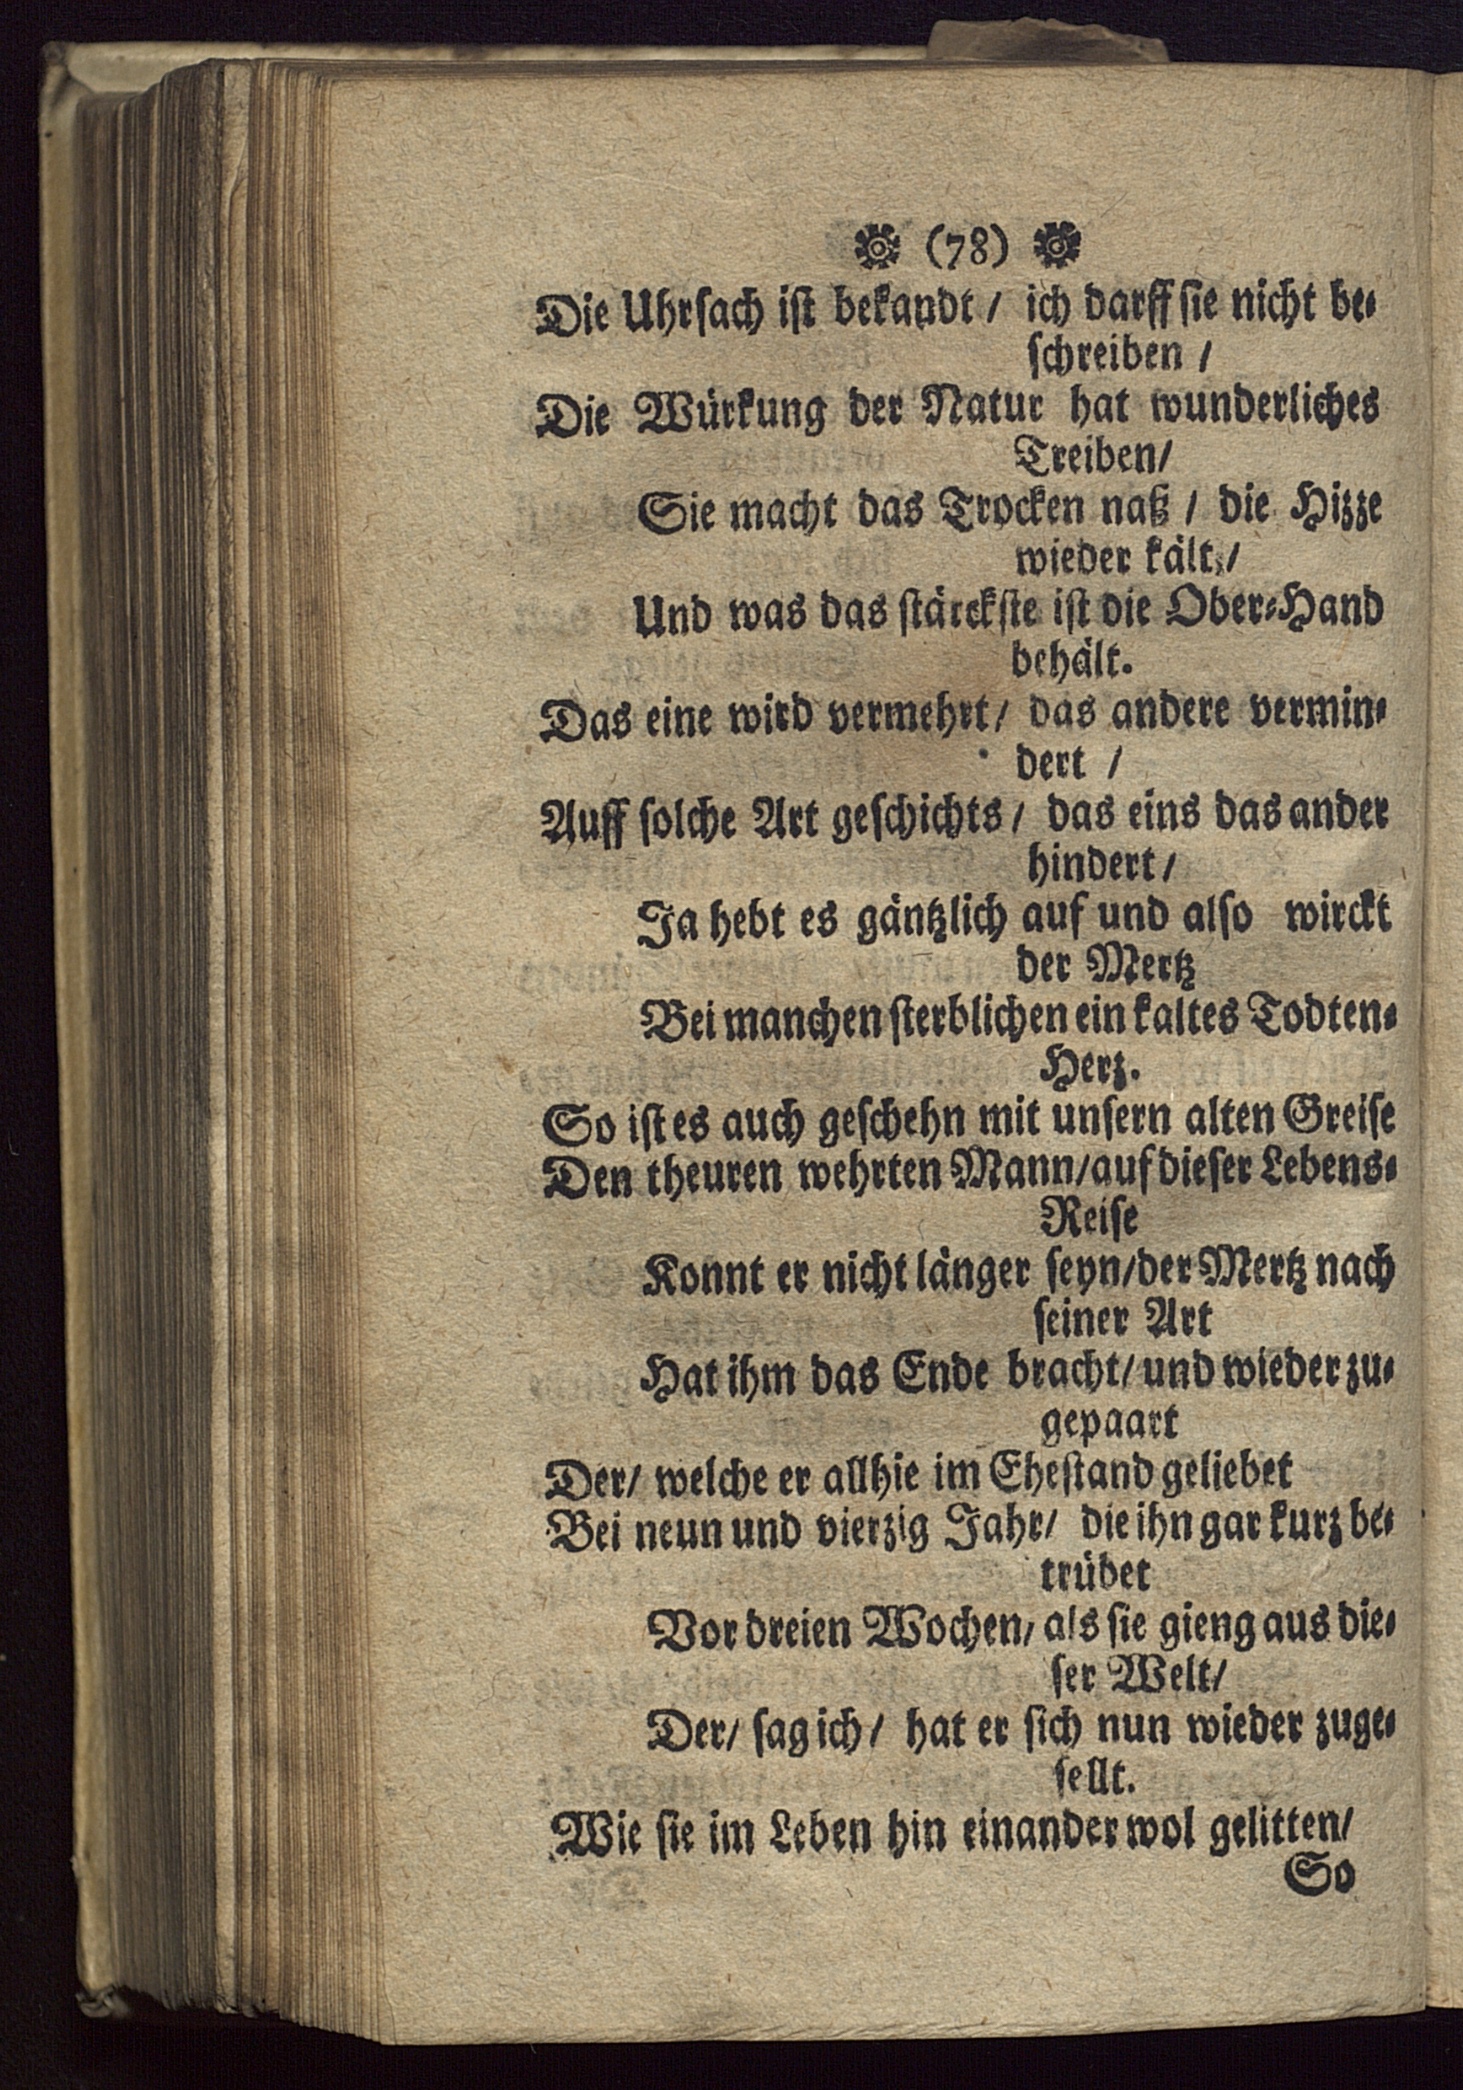 (78)
Die Uhrsach ist bekandt / ich darff sie nicht be-
schreiben /
Die Würkung der Natur hat wunderliches
Treiben/
Sie macht das Trocken naß / die Hizze
wieder kält, /
Und was das stärckste ist die Ober-Hand
behält.
Das eine wird vermehrt / das andere vermin-
dert /
Auff solche Art geschichts / das eins das ander
hindert /
Ja hebt es gäntzlich auf und also wirckt
der Mertz
Bei manchen sterblichen ein kaltes Todten-
Herz.
So ist es auch geschehn mit unsern alten Greise
Den theuren wehrten Mann/auf dieser Lebens-
Reise
Konnt er nicht länger seyn/der Mertz nach
seiner Art
Hat ihm das Ende bracht/und wieder zu-
gepaart
Der/ welche er allhie im Ehestand geliebet
Bei neun und vierzig Jahr/ die ihn gar kurz be-
trübet
Vor dreien Wochen/ als sie gieng aus die-
ser Welt/
Der/ sag ich / hat er sich nun wieder zuge-
sellt.
Wie sie im Leben hin einander wol gelitten/
So